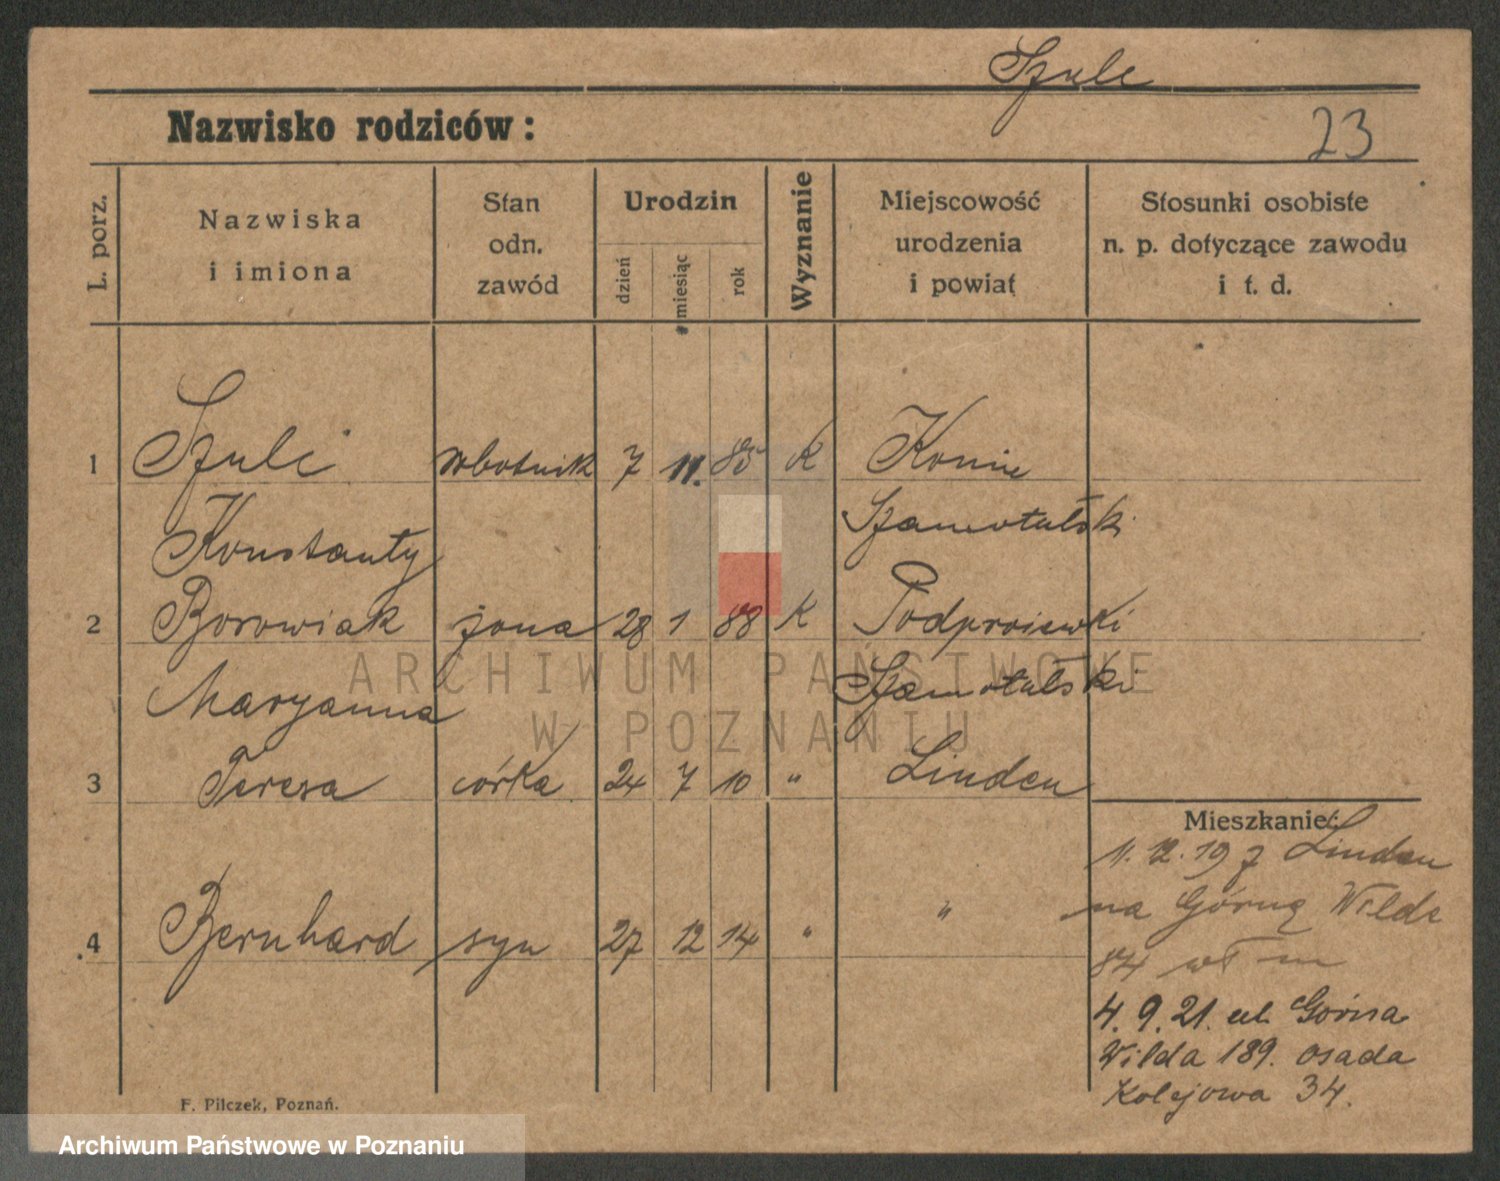 Szulc
Nazwisko rodziców:
23
L. porz.
Nazwiska
i imiona
Stan
odn.
zawód
Urodzin
dzień
miesiąc
rok
Wyznanie
Miejscowość
urodzenia
i powiat
Stosunki osobiste
n. p. dotyczące zawodu
i t. d.
1 Szulc robotnik 7 11. 85 K Konin
Konstanty Szamotulski
2 Borowiak żona 28 1 88 K
Maryanna Szamotulski
3 Teresa córka 24 7 10 " Linden
4 Bernhard syn 27 12 14 " "
Mieszkanie:
1.12.19 z Linden
na Górną Wilde
84
4.9.21. ul. Górna
Wilda 189. osada
Kolejowa 34.
F. Pilczek, Poznań.
ARCHIWUM PAŃSTWOWE
W POZNANIU
Archiwum Państwowe w Poznaniu